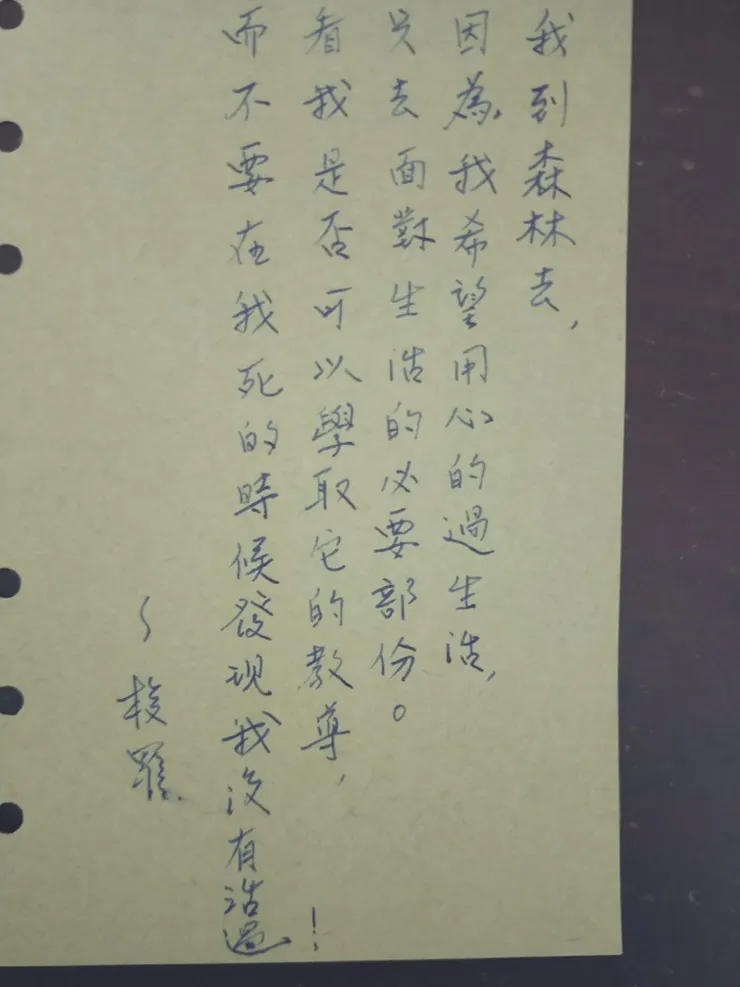 我到森林去,
因為,我希望用心的過生活,
只去面對生活的必要部份。
看我是否可以學取它的教導,
而不要在我死的時候發現我沒有活過!
~梭羅